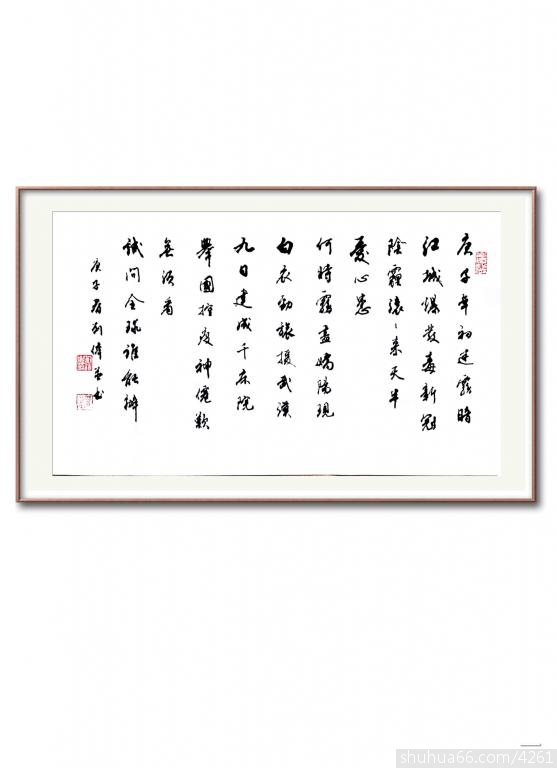 庚子年初迷霧暗
江城爆發毒新冠
陰霾滾〻来天半
憂心患
何時霧盡嬌陽現
白衣勁旅援武漢
九日建成千床院
舉國控疫神僊歎
無須看
試问全球誰能辦
庚子春刘偉书
shuhua66.com/4261